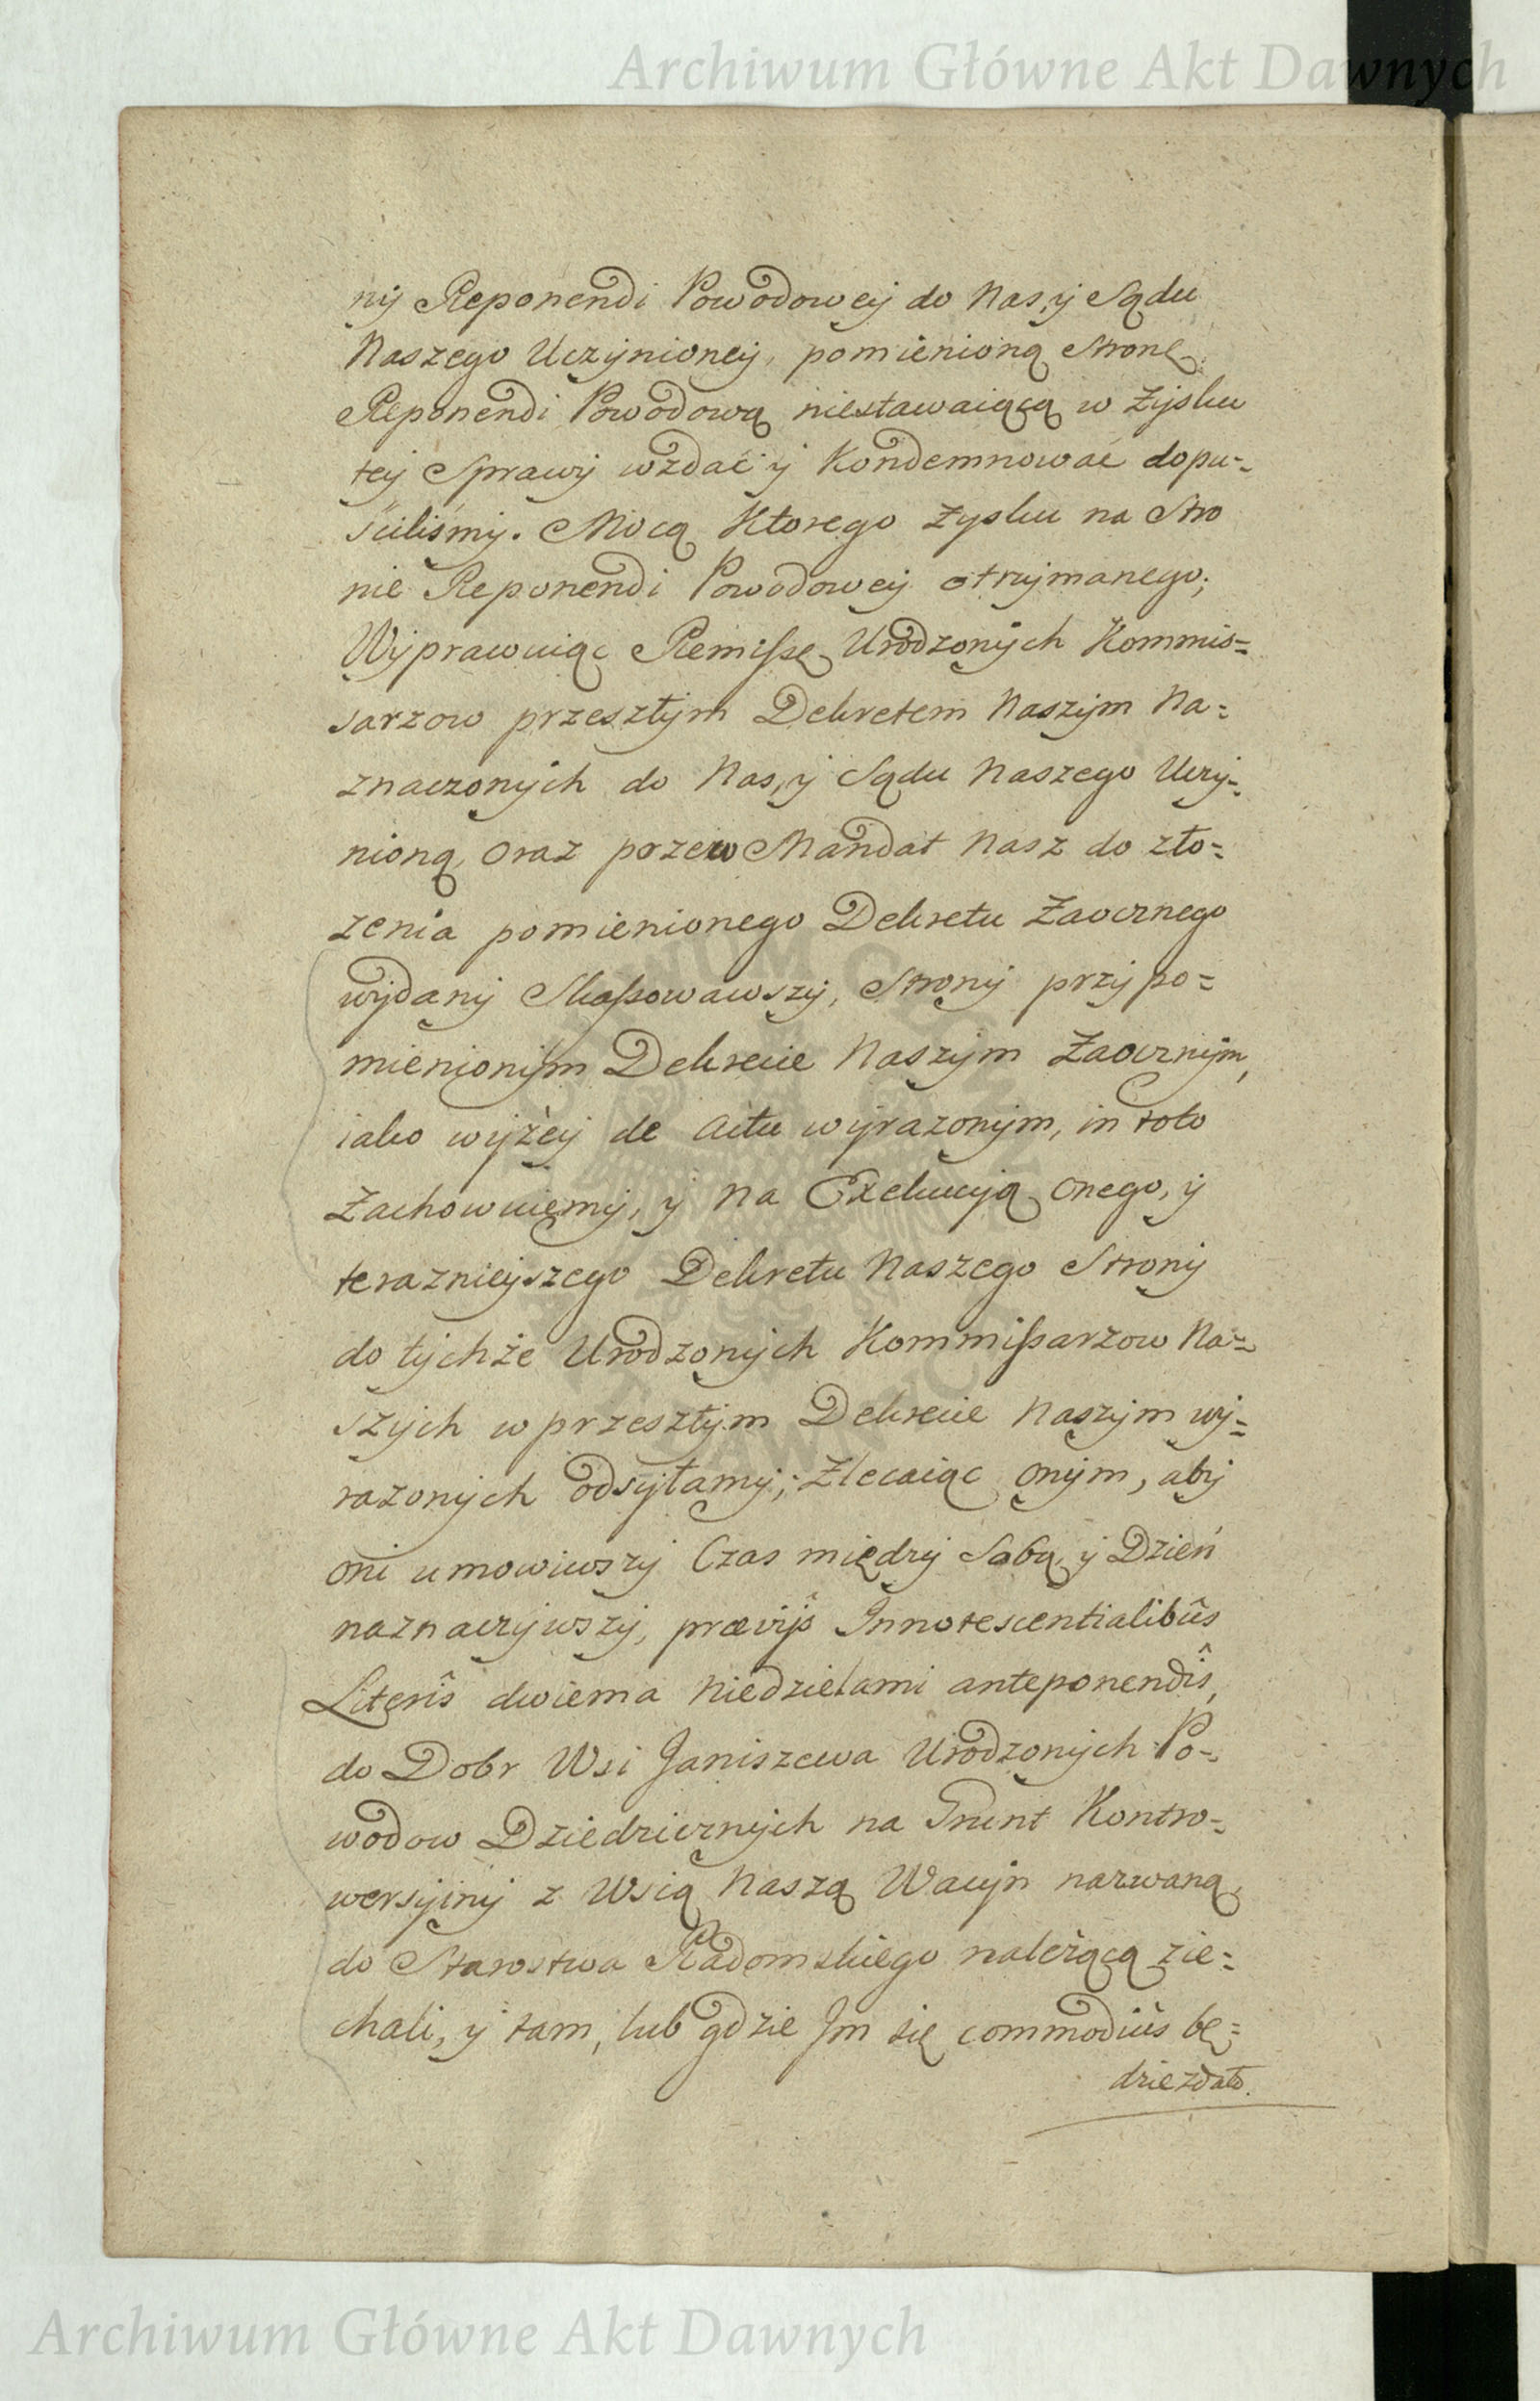 Archiwum Główne Akt Dawnych
ny Reponendi Powodowey do Nas, y Sądu
Naszego Uczynioney, pomienioną Stronę
Reponendi Powodową niestawaiącą w Zysku
tey Sprawy wzdać y Kondemnować dopu-
ściliśmy. Mocą Ktorego Zysku na Stro
nie Reponendi Powodowey otrzymanego;
Wyprawuiąc Remissę Urodzonych Kommis-
sarzow przeszłym Dekretem Naszym Na-
znaczonych do Nas, y Sądu Naszego Uczy-
nioną, oraz przew Mandat Nasz do zło-
zenia pomienionego Dekretu Zaocznego
wydany Skassowawszy, Strony przy po-
mienionym Dekrecie Naszym Zaocznym,
iako wyżey de actu wyrazonym, in toto
Zachowuięmy, y na Exekucyą onego, y
terazniejszego Dekretu Naszego Strony
do tychże Urodzonych Kommissarzow Na-
szych w przeszłym Dekrecie Naszym wy-
razonych odsyłamy; Zlecaiąc onym, aby
oni umowiwszy Czas między Sobą y Dzień
naznaczywszy, prævijs Innotescentialibus
Literis dwiema Niedzielami anteponendis,
do Dobr Wsi Janiszewa Urodzonych Po-
wodow Dziedzicznych na Grunt Kontro-
wersyiny z Wsią Naszą Wacyn nazwaną,
do Starostwa Radomskiego należącą zie-
chali, y tam, lub gdzie Im się commodius bę-
dzie zdało.
Archiwum Główne Akt Dawnych